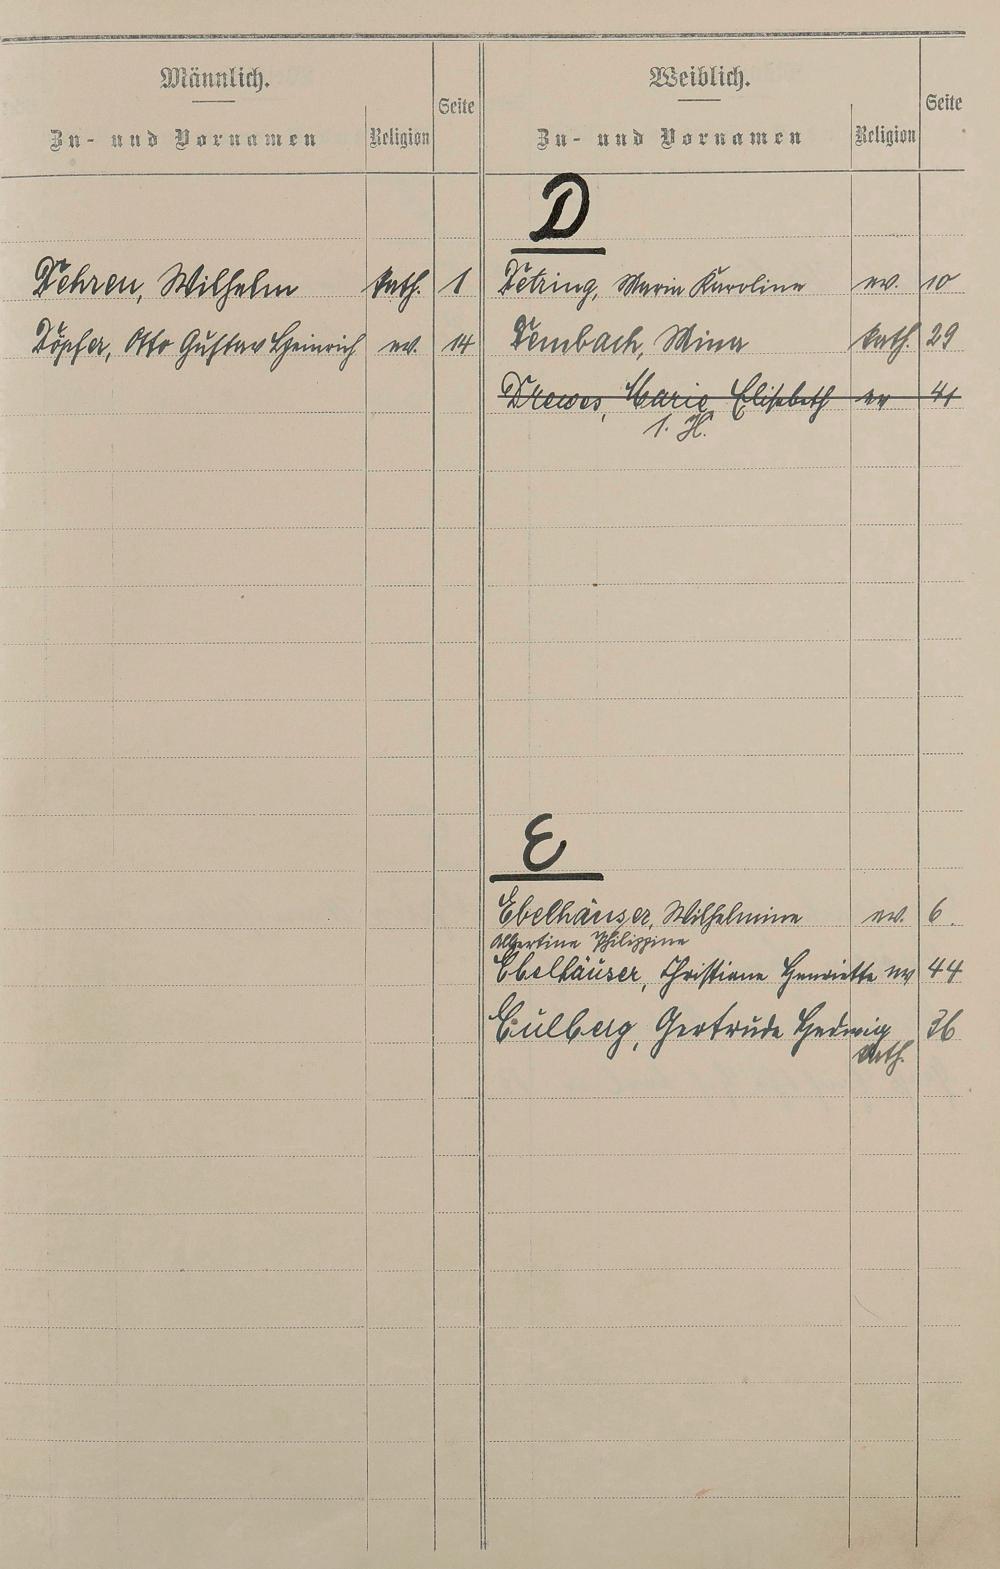 Männlich.
Zu- und Vornamen
Religion
Seite
Dehren, Wilhelm kath. 1
Döpfer, Otto Gustav Heinrich ev. 14
Weiblich.
Zu- und Vornamen
Religion
Seite
D
Detring, Maria Karoline ev. 10
Dembach, Mina kath. 29
Drewes, Marie Elisabeth ev 41
s. H.
E
Ebelhäuser, Wilhelmine ev. 6.
Albertine Philippine
Ebelhäuser, Christiane Henriette ev 44
Eulberg, Gertrude Hedwig 36
kath.